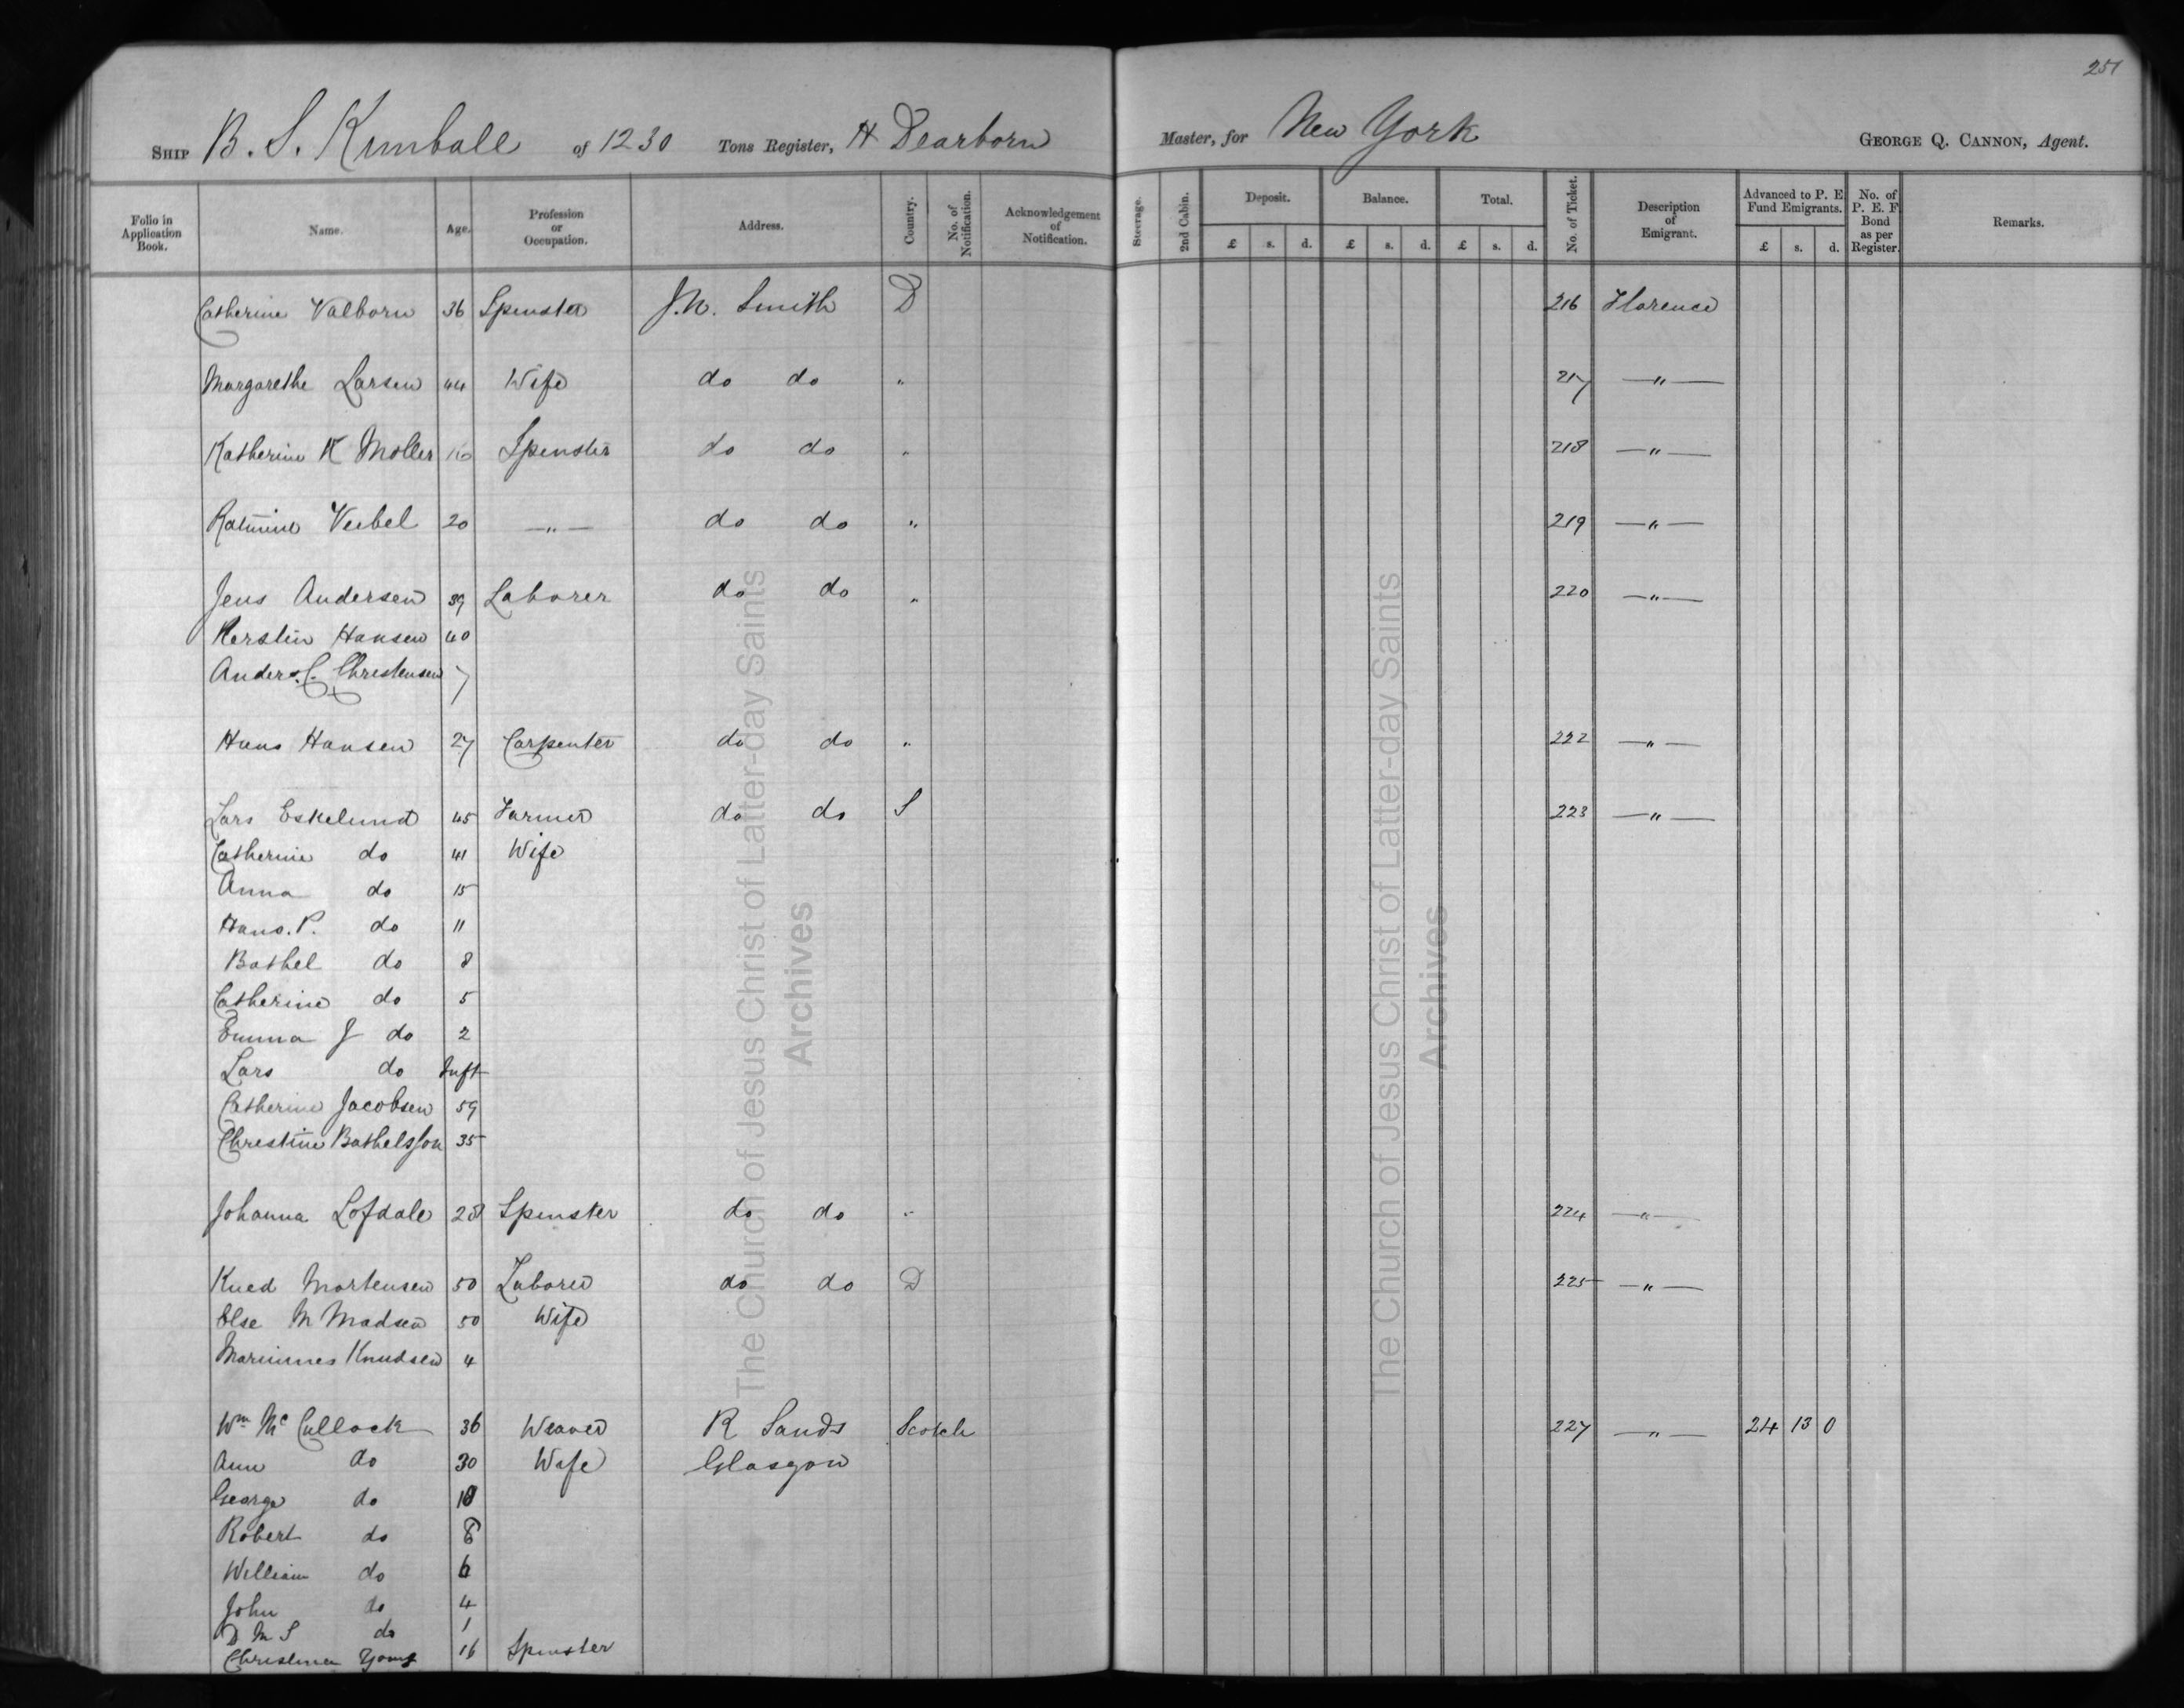 251
SHIP B. S. Kimball of 1230 Tons Register, H Dearborn Master, for New York GEORGE Q. CANNON, Agent.
Folio in Application Book. Name. Age. Profession or Occupation. Address. Country. No. of Notification. Acknowledgement of Notification. Steerage. 2nd Cabin. Deposit. £ s. d. Balance. £ s. d. Total. £ s. d. No. of Ticket. Description of Emigrant. Advanced to P. E. Fund Emigrants. £ s. d. No. of P. E. F. Bond as per Register. Remarks.
Catherine Valborn 36 Spinster J. N. Smith D 216 Florence
Margarethe Larsen 44 Wife do do " 217 — " —
Katherine K Moller 16 Spinster do do " 218 — " —
Veibel 20 — " — do do " 219 — " —
Jens Andersen 39 Laborer do do " 220 — " —
Kerstin Hansen 40
Anders. C. Christensen 7
Hans Hansen 27 Carpenter do do " 222 — " —
Lars Eskelund 45 Farmer do do S 223 — " —
Catherine do 41 Wife
Anna do 15
Hans. P. do 11
Bothel do 8
Catherine do 5
Emma J do 2
Lars do Inft
Catherine Jacobsen 59
Christine Bothelsson 35
Johanna Lofdale 28 Spinster do do " 224 — " —
Kued Mortensen 50 Laborer do do D 225 — " —
Else M Madsen 50 Wife
Marinnes Knudsen 4
Wm McCullock 36 Weaver R Sands Scotch 227 — " — 24 13 0
Ann do 30 Wife Glasgow
George do 10
Robert do 8
William do 6
John do 4
D M S do 1
Christina Young 16 Spinster
The Church of Jesus Christ of Latter-day Saints
Archives
The Church of Jesus Christ of Latter-day Saints
Archives